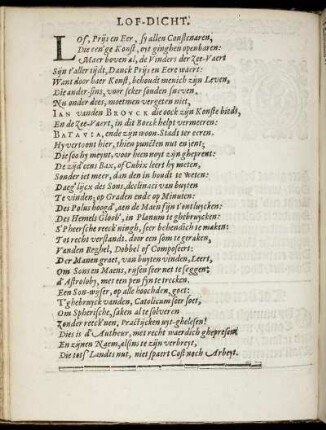 LOF-DICHT.
LOf, Prijs en Eer, sy allen Constenaren,
Die een'ge Konst, oyt ginghen openbaren:
Maer boven al, de Vinders der Zee-Vaert
Sijn t'aller tijdt, Danck Prijs en Eere waert:
Want door haer Konst, behoudt menich zijn Leven,
Die ander-sins, voor seker souden sneven.
Nu onder dees, moetmen vergeten niet,
IAN vanden BROVCK die oock zijn Konste biedt,
En de Zee-Vaert, in dit Boeck helpt vermeeren:
BATAVIA, ende zijn woon-Stadt ter eeren.
Hy vertoont hier, thien puncten nut en jent;
Die soo hy meynt, voor heen noyt zijn gheprent:
De zijd'eens Bax, of Cubix leert hy meten,
Sonder iet meer, dan den in houdt te weten:
Daeg'lijcx des Sons, declinaci van buyten
Te vinden; op Graden ende op Minuten:
Des Polus hoogd', aen de Maen sijn t'ontsluyten:
Des Hemels Gloob', in Planum te ghebruycken:
S'Pheersche reeck'ningh, seer behendich te maken:
Tot recht verstandt, door een som te geraken,
Vanden Reghel, Dobbel of Composeert:
Der Manen graet, van buyten vinden, Leert,
Om Sons en Maens, rijsen seer net te seggen;
d'Astroloby, met een pen sijn te trecken.
Een Son-wijser, op alle hoochden, goet:
T'ghebruyck vanden, Catolicum seer soet,
Om Spherische, saken al te solveren
Zonder reeck'nen, Practijcken uyt-ghelesen!
Dies is d'Autheur, met recht waerdich ghepresen
En zijnen Naem, alsins te zijn verbreyt,
Die totś Landts nut, niet spaert Cost noch Arbeyt.